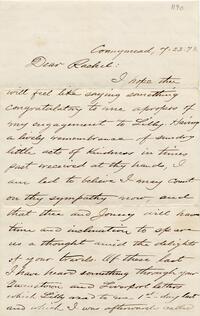 1190
Connymead, 7/23.73
Dear Rachel:
I hope thee
will feel like saying something
congratulatory to me apropos of
my engagement to Lilly. Having
a lively remembrance of sundry
little acts of kindness in times
past received at thy hands, I
am led to believe I may count
on thy sympathy now, and
that thee and Jonny will have
time and inclination to spare
us a thought amid the delights
of your travels. Of these last
I have heard something through your
Queenstown and Liverpool letters
which Lilly read to me 1st day last
and which I was afterwards